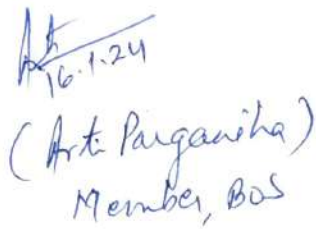 Arti
16.1.24
(Arti Parganiha)
Member, BOS